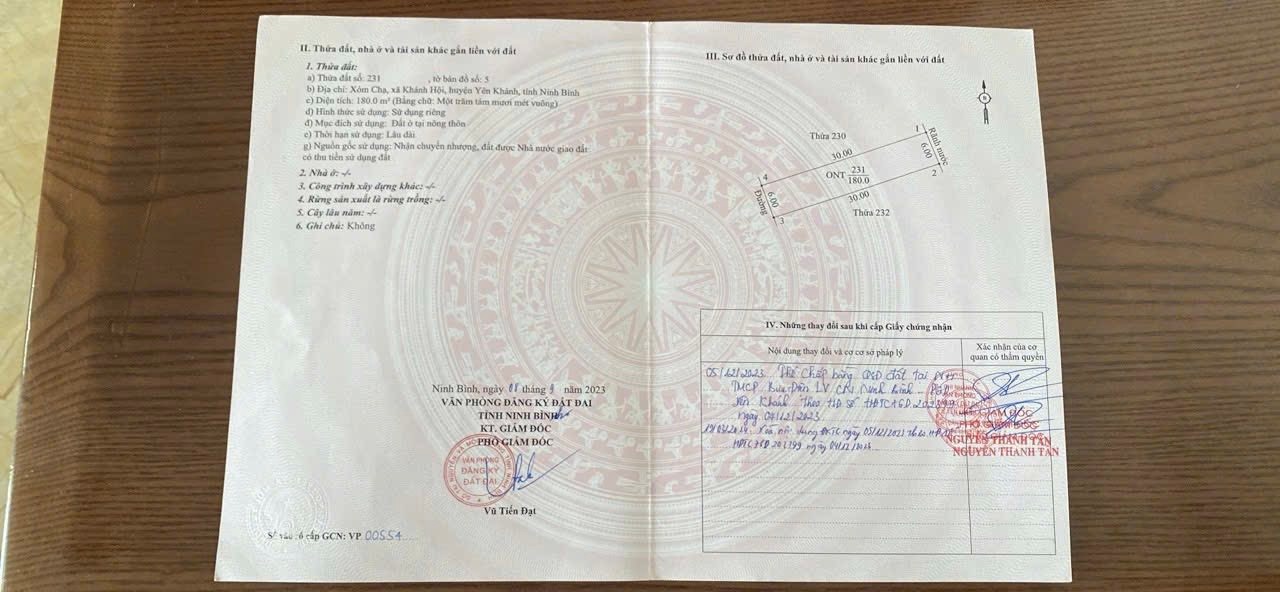 II. Thửa đất, nhà ở và tài sản khác gắn liền với đất
1. Thửa đất:
a) Thửa đất số: 231 , tờ bản đồ số: 5
b) Địa chỉ: Xóm Chạ, xã Khánh Hội, huyện Yên Khánh, tỉnh Ninh Bình
c) Diện tích: 180.0 m² (Bằng chữ: Một trăm tám mươi mét vuông)
d) Hình thức sử dụng: Sử dụng riêng
đ) Mục đích sử dụng: Đất ở tại nông thôn
e) Thời hạn sử dụng: Lâu dài
g) Nguồn gốc sử dụng: Nhận chuyển nhượng, đất được Nhà nước giao đất
có thu tiền sử dụng đất
2. Nhà ở: -/-
3. Công trình xây dựng khác: -/-
4. Rừng sản xuất là rừng trồng: -/-
5. Cây lâu năm: -/-
6. Ghi chú: Không
Ninh Bình, ngày 08 tháng 9 năm 2023
VĂN PHÒNG ĐĂNG KÝ ĐẤT ĐAI
TỈNH NINH BÌNH
KT. GIÁM ĐỐC
PHÓ GIÁM ĐỐC
VĂN PHÒNG
ĐĂNG KÝ
ĐẤT ĐAI
Vũ Tiến Đạt
Số vào sổ cấp GCN: VP 00554
III. Sơ đồ thửa đất, nhà ở và tài sản khác gắn liền với đất
Thửa 230
1
Rãnh nước
30.00
6.00
4
ONT 231
180.0
2
Đường
6.00
30.00
3
Thửa 232
IV. Những thay đổi sau khi cấp Giấy chứng nhận
Nội dung thay đổi và cơ sở pháp lý
Xác nhận của cơ
quan có thẩm quyền
05/12/2023 Thế chấp bằng QSD đất tại
TMCP Bưu Điện LV CN Ninh Bình
Yên Khánh theo HĐ số
ngày 04/12/2023
Xoá nội dung ĐKTC ngày 05/12/2023 theo
ngày 04/12/2023
GIÁM ĐỐC
PHÓ GIÁM ĐỐC
NGUYỄN THANH TÂN
NGUYỄN THANH TÂN